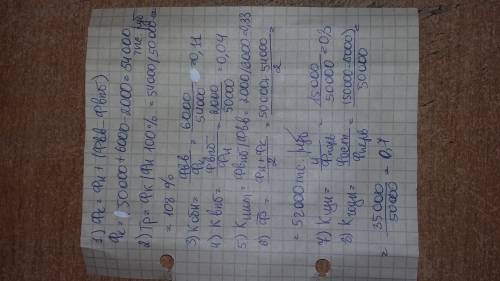 1) Фс = Фн + (Фвв - Фвыб)
Фс = 50000 + 6000 - 2000 = 54000
тыс. руб
2) Тр = Фк / Фн 100% = 54000 / 50000 =
= 108 %
3) Kобн = Фвв / Фк = 6000 / 54000 = 0,11
4) Квыб = Фвыб / Фн = 2000 / 50000 = 0,04
5) = Фвыб / Фвв = 2000 / 6000 = 0,33
6) Ф = Фн + Фс / 2 = 50000 + 54000 / 2 =
= 52000 тыс. руб
7) Кизн = И / Фперв = 15000 / 50000 = 0,3
8) Кгодн = Фост / Фперв = (50000 - 15000) / 50000
= 35000 / 50000 = 0,7